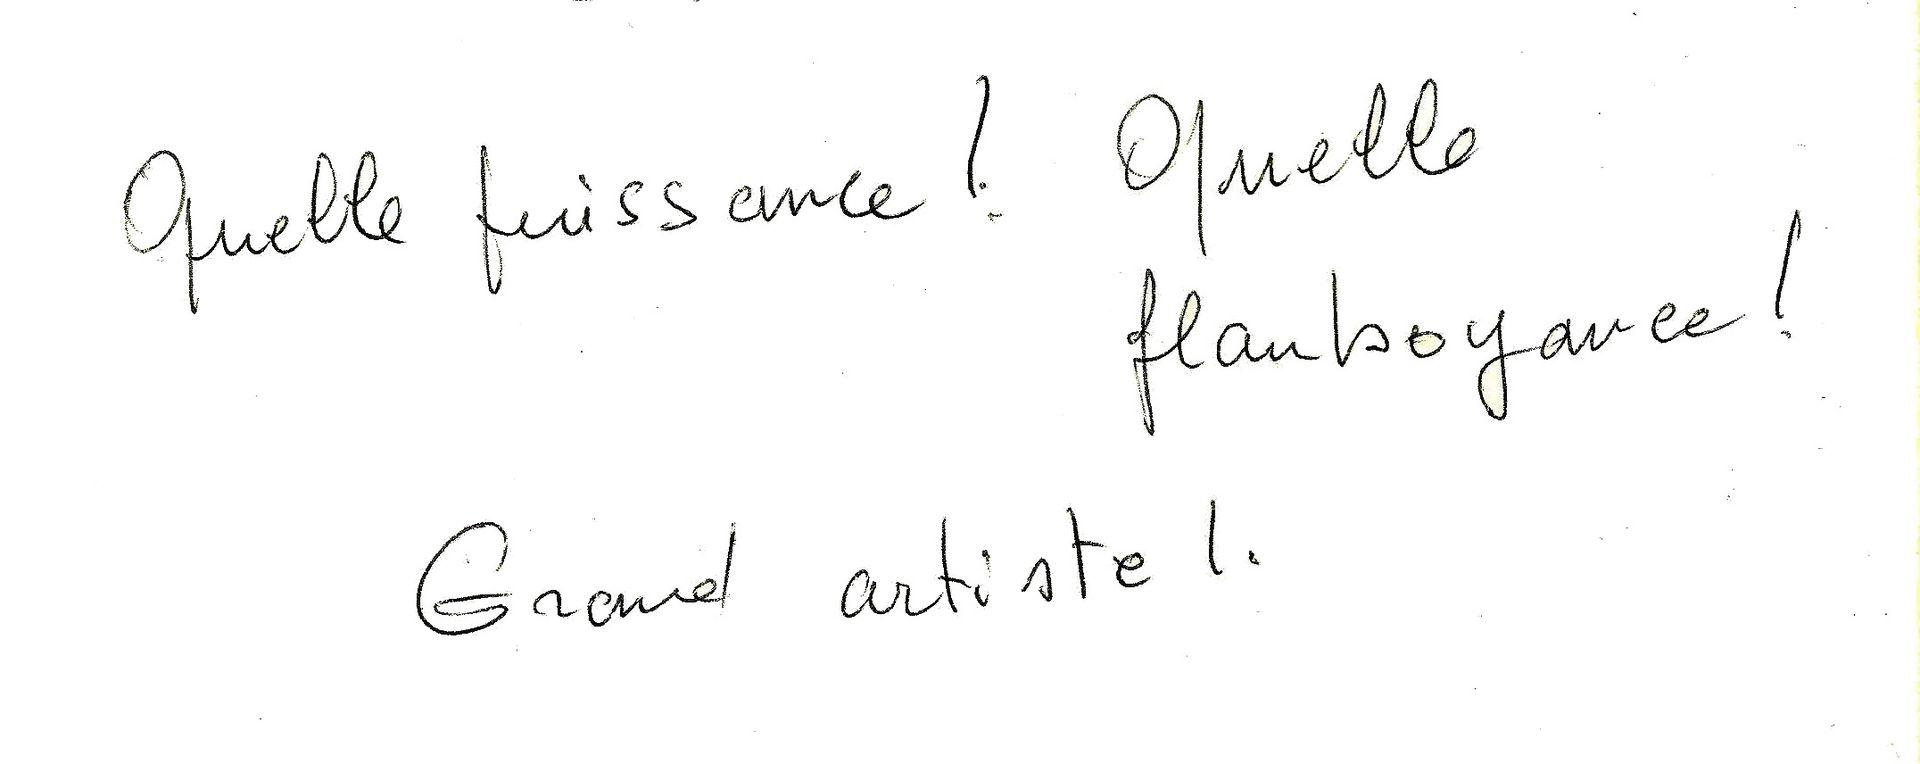 Quelle puissance ! Quelle
flamboyance !
Grand artiste !.